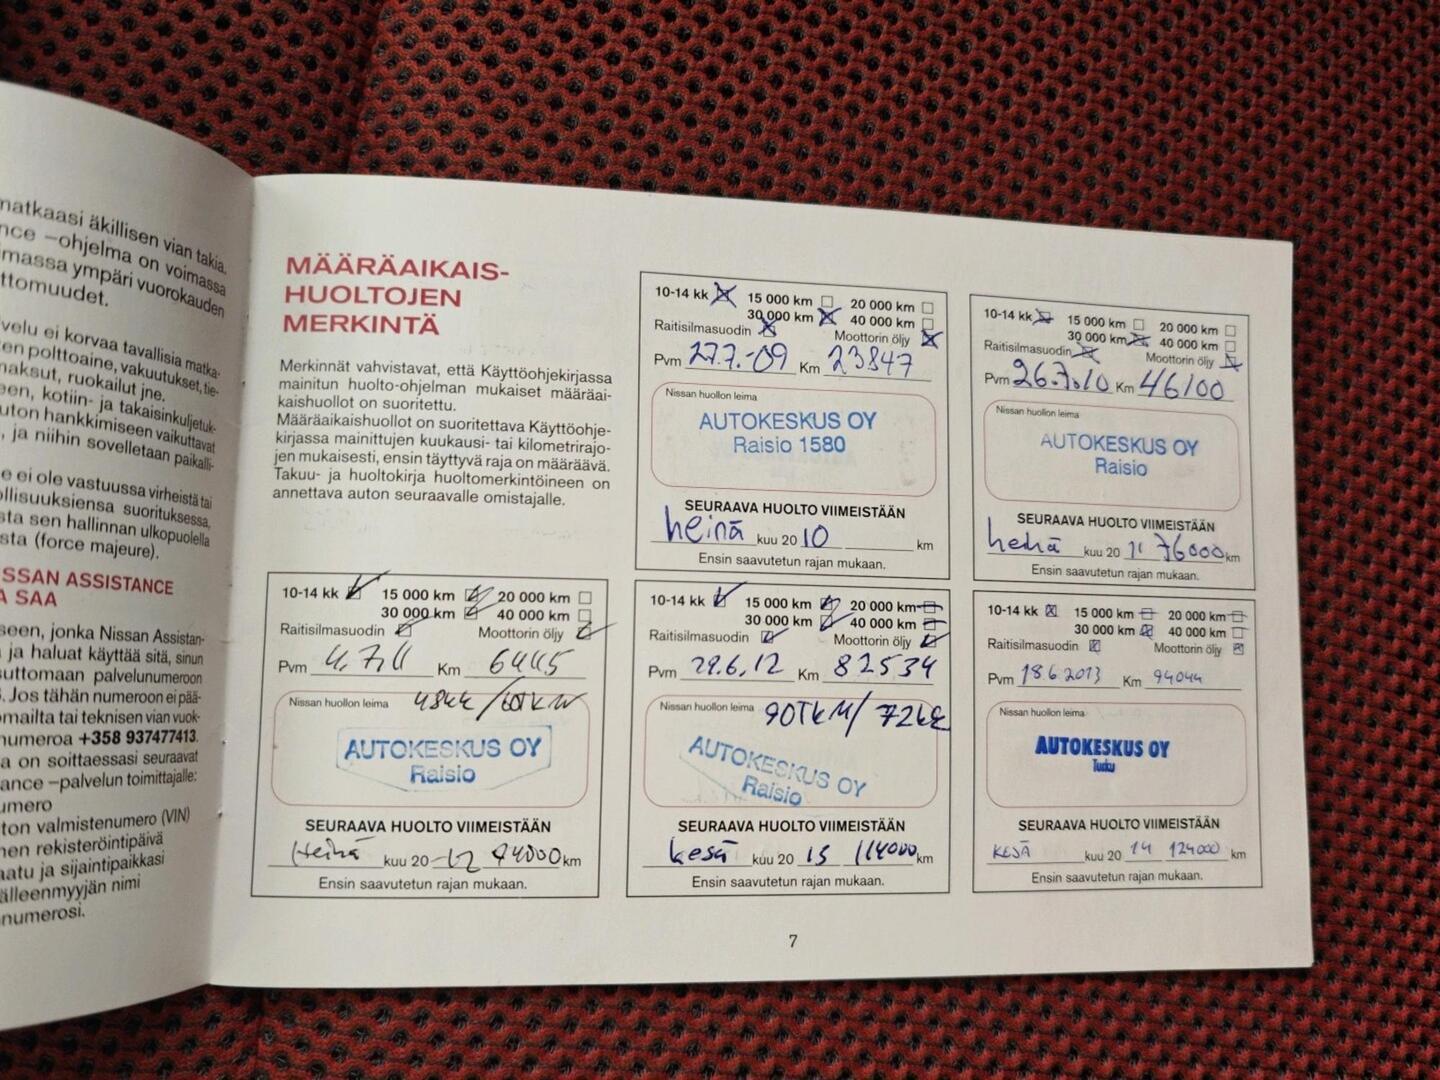 matkaasi äkillisen vian takia.
nce –ohjelma on voimassa
imassa ympäri vuorokauden
ttomuudet.
velu ei korvaa tavallisia matka-
en polttoaine, vakuutukset, tie-
maksut, ruokailut jne.
een, kotiin- ja takaisinkuljetuk-
uton hankkimiseen vaikuttavat
, ja niihin sovelletaan paikalli-
e ei ole vastuussa virheistä tai
ollisuuksiensa suorituksessa,
sta sen hallinnan ulkopuolella
sta (force majeure).
ISSAN ASSISTANCE
A SAA
seen, jonka Nissan Assistan-
ja haluat käyttää sitä, sinun
suttomaan palvelunumeroon
. Jos tähän numeroon ei pää-
omailta tai teknisen vian vuok-
numeroa +358 937477413.
a on soittaessasi seuraavat
ance –palvelun toimittajalle:
umero
ton valmistenumero (VIN)
nen rekisteröintipäivä
aatu ja sijaintipaikkasi
älleenmyyjän nimi
numerosi.
MÄÄRÄAIKAIS-
HUOLTOJEN
MERKINTÄ
Merkinnät vahvistavat, että Käyttöohjekirjassa
mainitun huolto-ohjelman mukaiset määräai-
kaishuollot on suoritettu.
Määräaikaishuollot on suoritettava Käyttöohje-
kirjassa mainittujen kuukausi- tai kilometrirajo-
jen mukaisesti, ensin täyttyvä raja on määräävä.
Takuu- ja huoltokirja huoltomerkintöineen on
annettava auton seuraavalle omistajalle.
10-14 kk 15 000 km 20 000 km
30 000 km 40 000 km
Raitisilmasuodin Moottorin öljy
Pvm 27.7.-09 Km 23847
Nissan huollon leima
AUTOKESKUS OY
Raisio 1580
SEURAAVA HUOLTO VIIMEISTÄÄN
heinä kuu 20 10 km
Ensin saavutetun rajan mukaan.
10-14 kk 15 000 km 20 000 km
30 000 km 40 000 km
Raitisilmasuodin Moottorin öljy
Pvm 26.7.10 Km 46100
Nissan huollon leima
AUTOKESKUS OY
Raisio
SEURAAVA HUOLTO VIIMEISTÄÄN
heinä kuu 20 11 76000 km
Ensin saavutetun rajan mukaan.
10-14 kk 15 000 km 20 000 km
30 000 km 40 000 km
Raitisilmasuodin Moottorin öljy
Pvm 4.7.11 Km 64115
Nissan huollon leima 48kk/60TKM
AUTOKESKUS OY
Raisio
SEURAAVA HUOLTO VIIMEISTÄÄN
Heinä kuu 20 -12 94000 km
Ensin saavutetun rajan mukaan.
10-14 kk 15 000 km 20 000 km
30 000 km 40 000 km
Raitisilmasuodin Moottorin öljy
Pvm 29.6.12 Km 82534
Nissan huollon leima 90TKM/72kk
AUTOKESKUS OY
Raisio
SEURAAVA HUOLTO VIIMEISTÄÄN
kesä kuu 20 13 114000 km
Ensin saavutetun rajan mukaan.
10-14 kk 15 000 km 20 000 km
30 000 km 40 000 km
Raitisilmasuodin Moottorin öljy
Pvm 18.6.2013 Km 94044
Nissan huollon leima
AUTOKESKUS OY
Turku
SEURAAVA HUOLTO VIIMEISTÄÄN
KESÄ kuu 20 14 124000 km
Ensin saavutetun rajan mukaan.
7